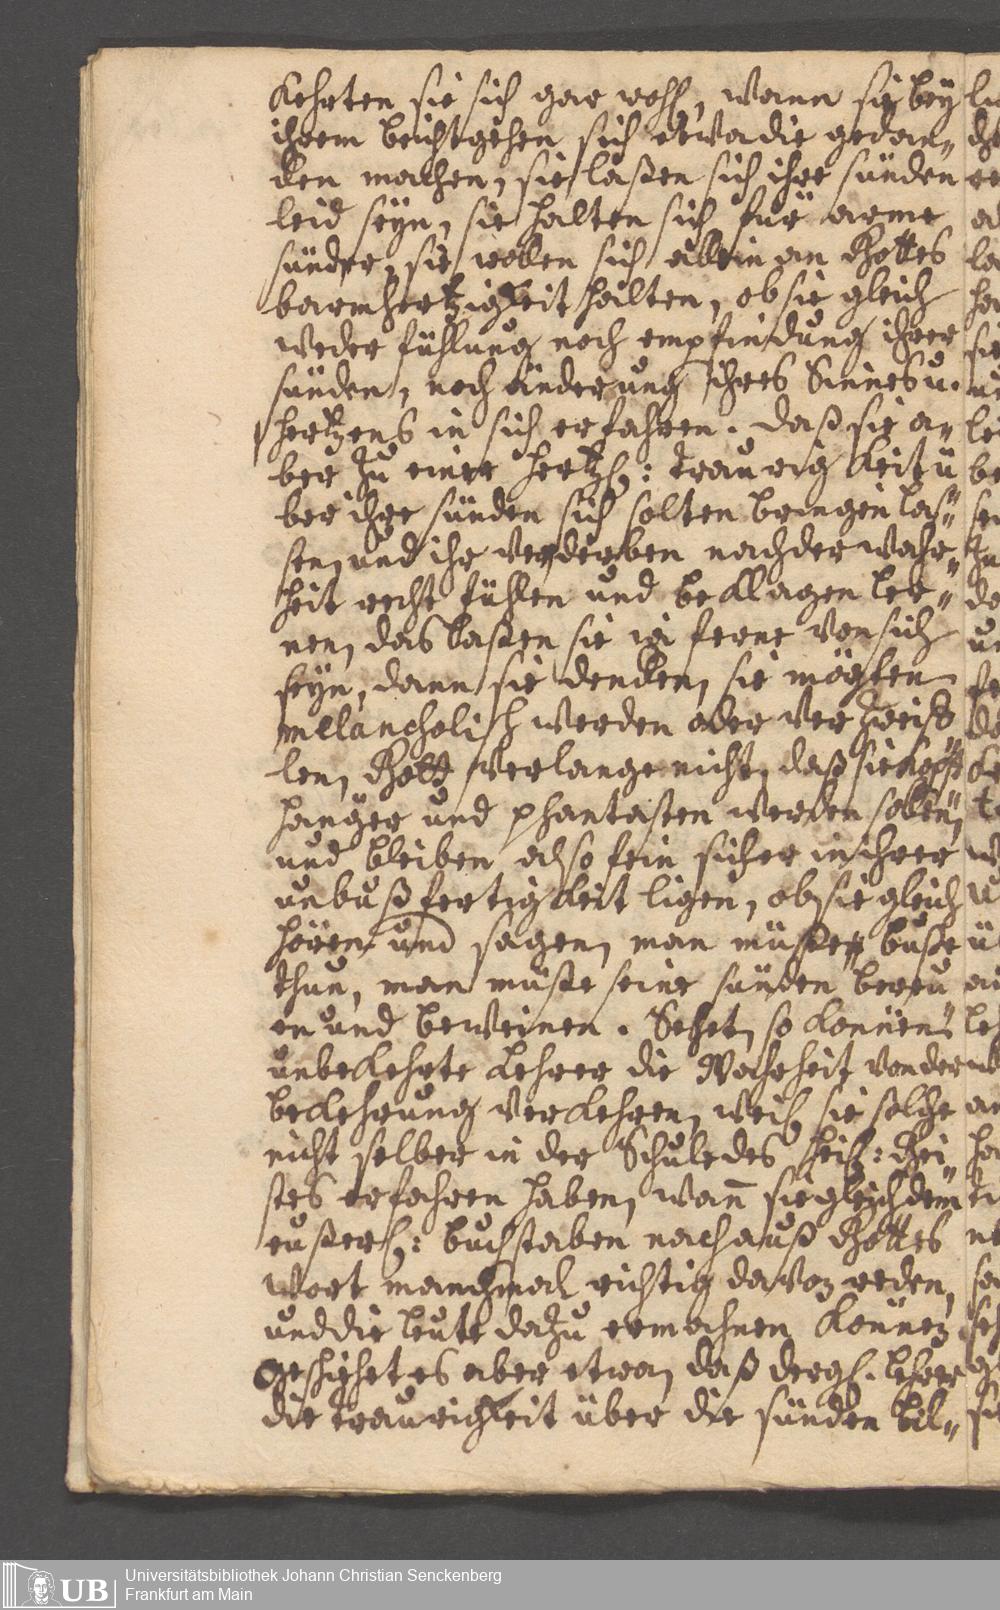 Kehrten sie sich gar wohl, wann sie bey
ihrem beichtgehen sich etwa die gedan„
cken machen, sie laßen sich ihre sünden
leid seyn, sie halten sich für arme
sünder, sie wollen sich allein an Gottes
barmhertzigkeit halten, ob sie gleich
weder fühlung noch empfindung ihrer
sünden, noch änderung ihres Sinnes u.
hertzens in sich erfahren. Daß sie a„
ber zu einer hertzl: traurigkeit ü
ber ihre sünden sich solten bringen las„
sen, und ihr verderben nach der wahr„
heit recht fühlen und beklagen ler„
nen, das laßen sie ferne von sich
seyn, dann sie dencken, sie mögten
melancholisch werden oder verzweif„
len, Gott verlange nicht, daß sie Kopf„
hänger und phantasten werden sollen,
und bleiben also fein sicher in ihrer
unbußfertigkeit ligen, ob sie gleich
hören und sagen, man müße buße
thun, man müße seine sünden bereu
en und beweinen. Sehet, so können
unbekehrte Lehrer die Wahrheit von der
bekehrung verkehren, weil sie solche
nicht selber in der Schule des heil: Gei„
stes erfahren haben, wann sie gleich dem
eußerl: buchstaben nach auß Gottes
wort manchmal richtig davon reden,
und die leute dazu ermahnen können
Geschiehet es aber etwa, daß dergl. lehrer
die traurigkeit über die sünden bil„
Universitätsbibliothek Johann Christian Senckenberg
Frankfurt am Main
UB